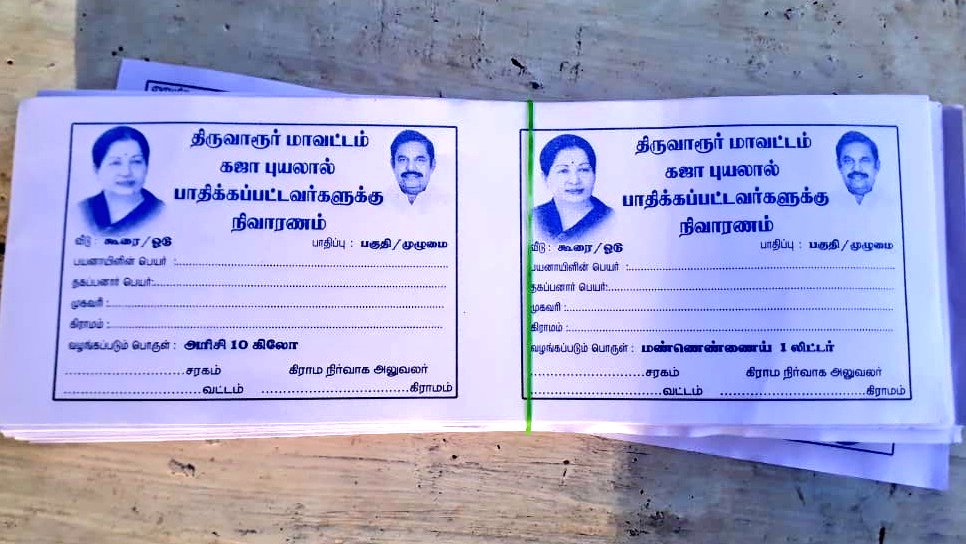 திருவாரூர் மாவட்டம்
கஜா புயலால்
பாதிக்கப்பட்டவர்களுக்கு
நிவாரணம்
வீடு : கூரை/ஓடு பாதிப்பு : பகுதி/முழுமை
பயனாயிளின் பெயர் :
தகப்பனார் பெயர்:
முகவரி :
கிராமம் :
வழங்கப்படும் பொருள் : அரிசி 10 கிலோ
சரகம் கிராம நிர்வாக அலுவலர்
வட்டம் கிராமம்
திருவாரூர் மாவட்டம்
கஜா புயலால்
பாதிக்கப்பட்டவர்களுக்கு
நிவாரணம்
வீடு : கூரை/ஓடு பாதிப்பு : பகுதி/முழுமை
பயனாயிளின் பெயர் :
தகப்பனார் பெயர்:
முகவரி :
கிராமம் :
வழங்கப்படும் பொருள் : மண்ணெண்ணைய் 1 லிட்டர்
சரகம் கிராம நிர்வாக அலுவலர்
வட்டம் கிராமம்